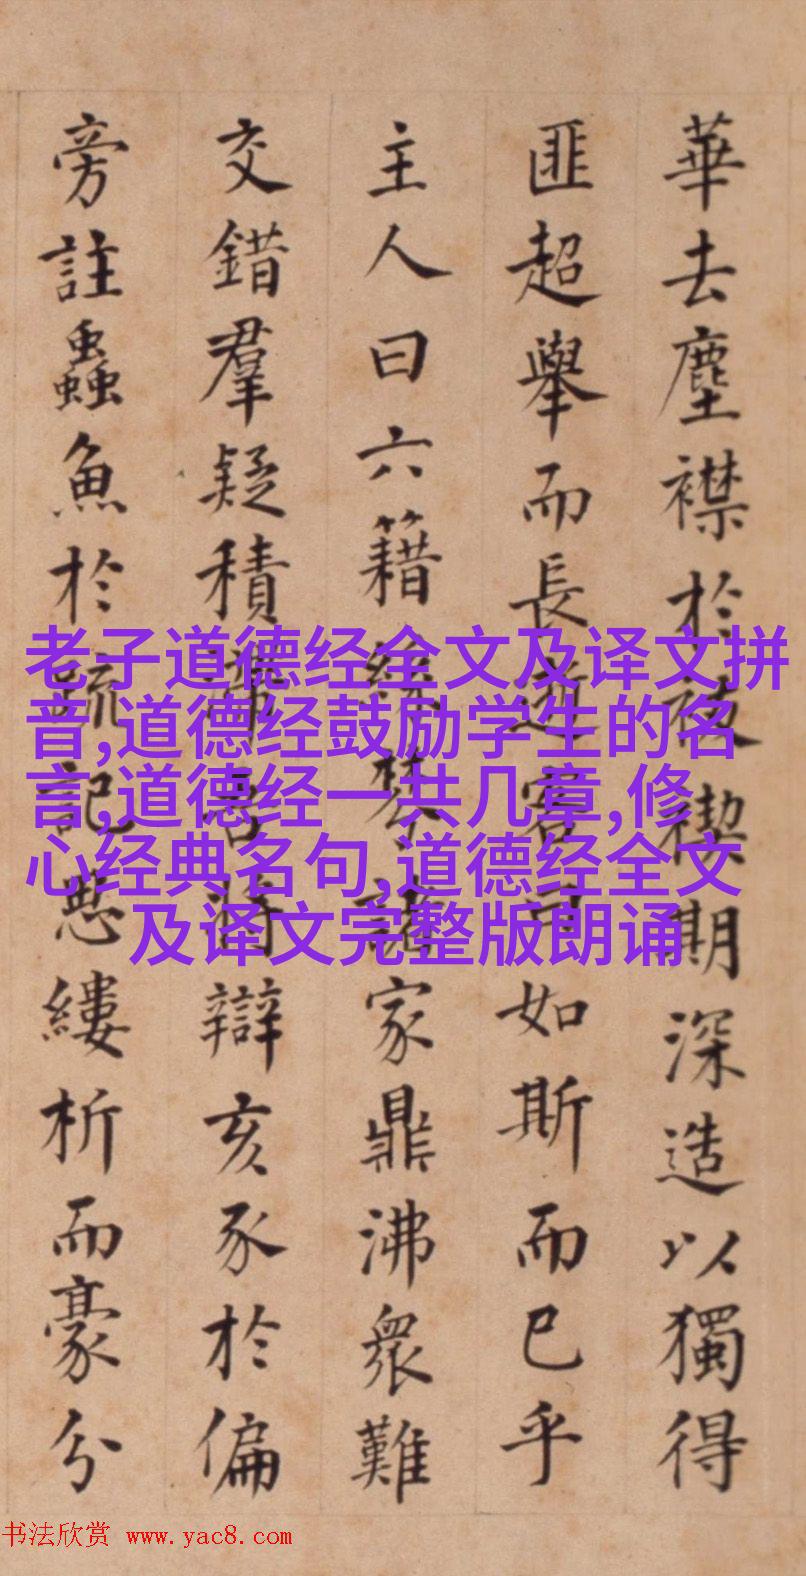 華去塵襟於祓禊期深造以獨得
匪超舉而長逝客曰如斯而已乎
主人曰六籍諸家鼎沸衆難
交錯羣疑積將辯亥豕於偏
旁註蟲魚於疏記悉縷析而豪分
老子道德经全文及译文拼
音,道德经鼓励学生的名
言,道德经一共几章,修
心经典名句,道德经全文
及译文完整版朗诵
书法欣赏 www.yac8.com